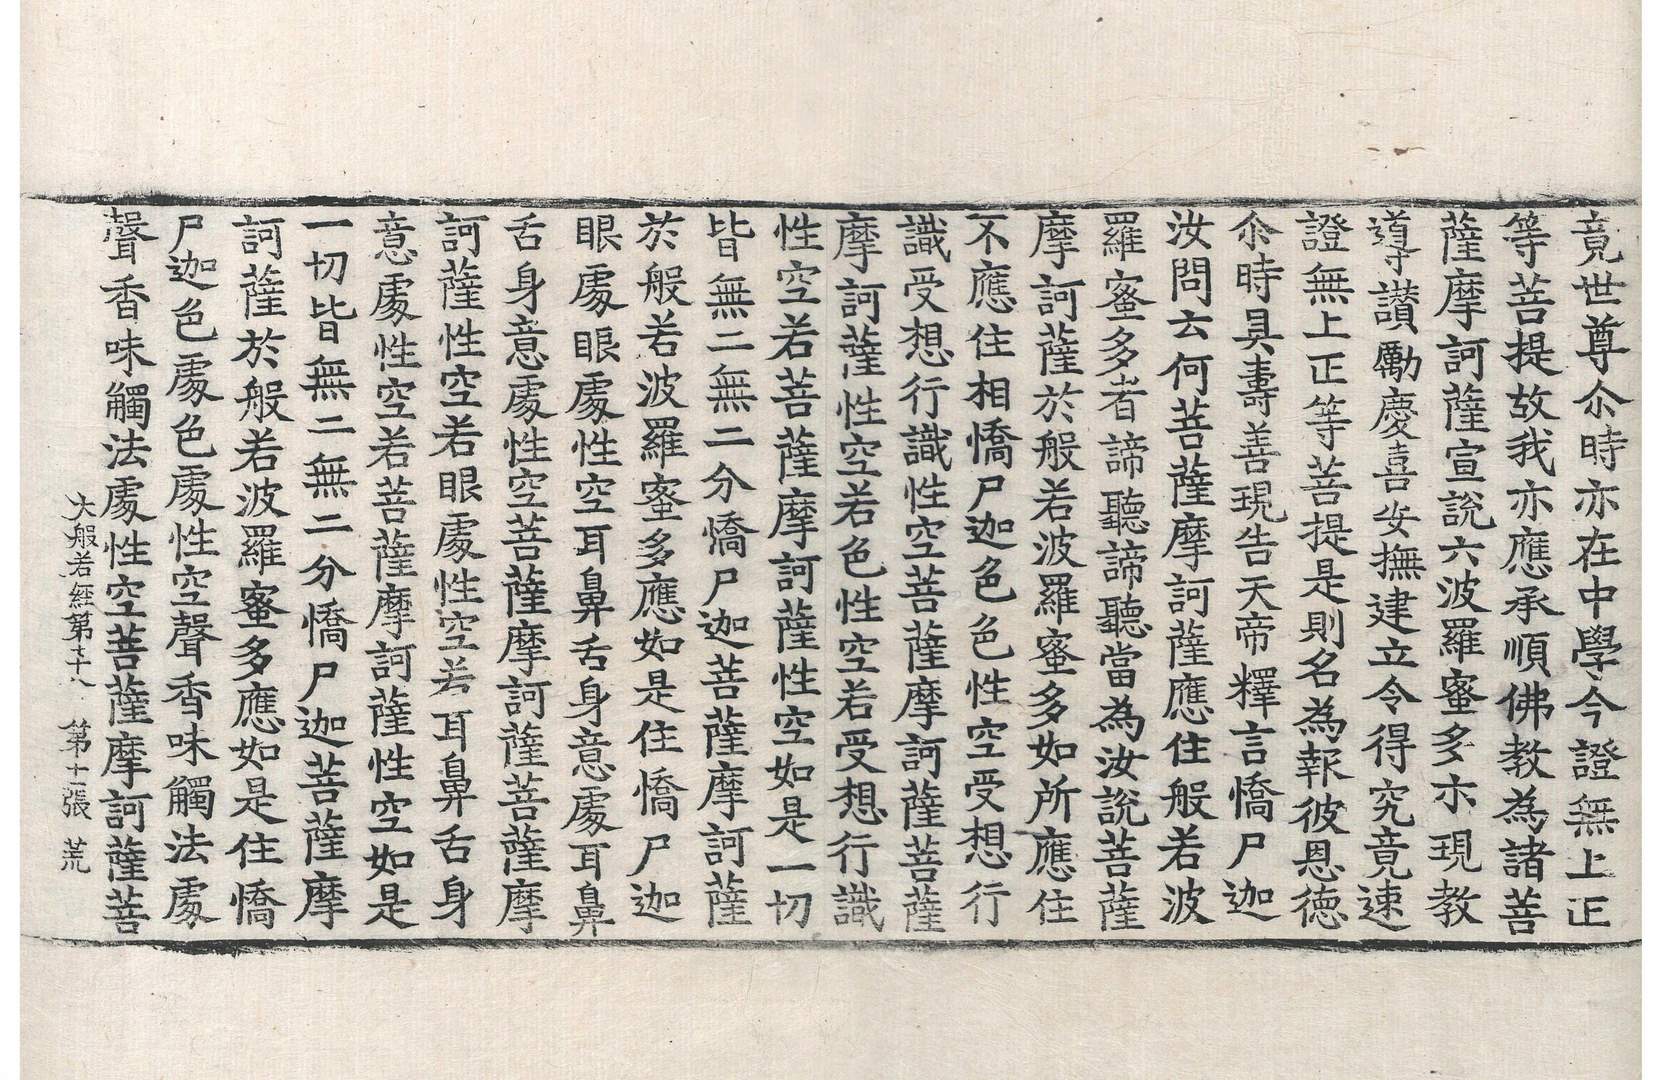 竟世尊尒時亦在中學今證無上正
等菩提故我亦應承順佛教為諸菩
薩摩訶薩宣說六波羅蜜多示現教
導讚勵慶喜安撫建立令得究竟速
證無上正等菩提是則名為報彼恩德
尒時具壽善現告天帝釋言憍尸迦
汝問云何菩薩摩訶薩應住般若波
羅蜜多者諦聽諦聽當為汝說菩薩
摩訶薩於般若波羅蜜多如所應住
不應住相憍尸迦色色性空受想行
識受想行識性空菩薩摩訶薩菩薩
摩訶薩性空若色性空若受想行識
性空若菩薩摩訶薩性空如是一切
皆無二無二分憍尸迦菩薩摩訶薩
於般若波羅蜜多應如是住憍尸迦
眼處眼處性空耳鼻舌身意處耳鼻
舌身意處性空菩薩摩訶薩菩薩摩
訶薩性空若眼處性空若耳鼻舌身
意處性空若菩薩摩訶薩性空如是
一切皆無二無二分憍尸迦菩薩摩
訶薩於般若波羅蜜多應如是住憍
尸迦色處色處性空聲香味觸法處
聲香味觸法處性空菩薩摩訶薩菩
大般若經第七十八 第十張 荒